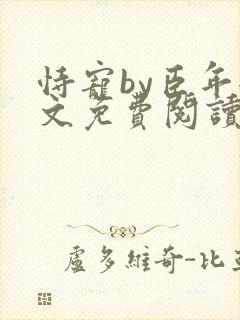 恃寵by臣年
文免費閱讀
盧多維奇-比